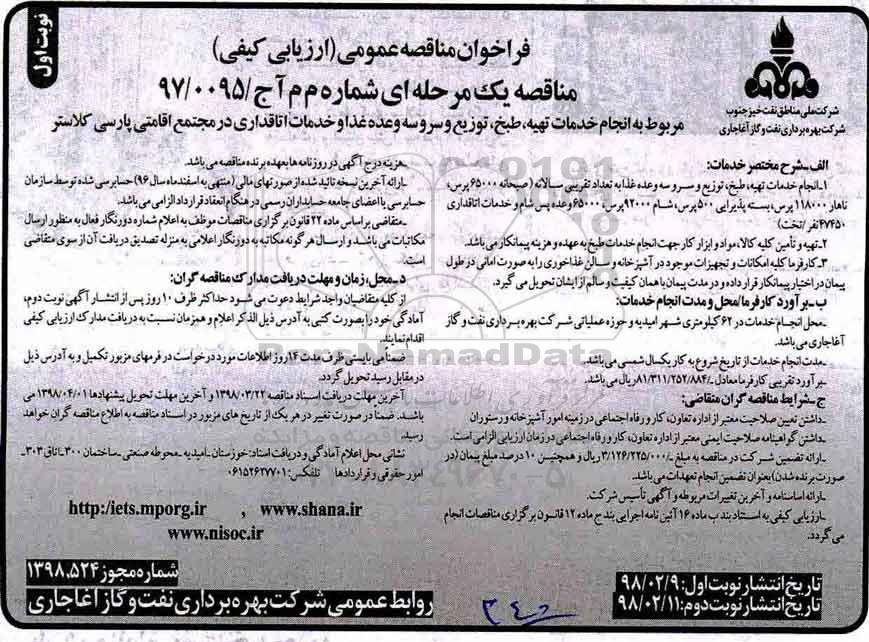 نوبت اول
فراخوان مناقصه عمومی (ارزیابی کیفی)
مناقصه یک مرحله ای شماره م م آ ج /۹۷/۰۰۹۵
مربوط به انجام خدمات تهیه، طبخ، توزیع و سرو سه وعده غذا و خدمات اتاقداری در مجتمع اقامتی پارسی کلاستر
شرکت ملی مناطق نفت خیز جنوب
شرکت بهره برداری نفت و گاز آغاجاری
الف ـ شرح مختصر خدمات:
۱ـ انجام خدمات تهیه، طبخ، توزیع و سرو سه وعده غذا به تعداد تقریبی سالانه (صبحانه ۶۵۰۰۰ پرس،
ناهار ۱۱۸۰۰۰ پرس، بسته پذیرایی ۵۰۰ پرس، شام ۹۲۰۰۰ پرس، ۶۵۰۰۰ وعده پس شام و خدمات اتاقداری
۴۷۴۵۰ نفر / تخت)
۲ـ تهیه و تأمین کلیه کالا، مواد و ابزار کار جهت انجام خدمات طبخ به عهده و هزینه پیمانکار می باشد.
۳ـ کارفرما کلیه امکانات و تجهیزات موجود در آشپزخانه و سالن غذاخوری را به صورت امانی در طول
پیمان در اختیار پیمانکار قرار داده و در مدت پیمان با همان کیفیت و سالم از ایشان تحویل می گیرد.
ب ـ برآورد کارفرما/محل و مدت انجام خدمات:
ـ محل انجام خدمات در ۶۲ کیلومتری شهر امیدیه و حوزه عملیاتی شرکت بهره برداری نفت و گاز
آغاجاری می باشد.
ـ مدت انجام خدمات از تاریخ شروع به کار یکسال شمسی می باشد.
ـ برآورد تقریبی کارفرما معادل ـ/۸۱/۳۱۱/۲۵۲/۸۸۴ ریال می باشد.
ج ـ شرایط مناقصه گران متقاضی:
ـ داشتن تعیین صلاحیت معتبر از اداره تعاون، کار و رفاه اجتماعی در زمینه امور آشپزخانه و رستوران
ـ داشتن گواهینامه صلاحیت ایمنی معتبر از اداره تعاون، کار و رفاه اجتماعی در زمان ارزیابی الزامی است.
ـ ارائه تضمین شرکت در مناقصه به مبلغ ـ/۳/۱۲۶/۲۲۵/۰۰۰ ریال و همچنین ۱۰ درصد مبلغ پیمان (در
صورت برنده شدن) بعنوان تضمین انجام تعهدات می باشد.
ـ ارائه اساسنامه و آخرین تغییرات مربوطه و آگهی تأسیس شرکت.
ـ ارزیابی کیفی به استناد بند ب ماده ۱۶ آئین نامه اجرایی بند ج ماده ۱۲ قانون برگزاری مناقصات انجام
می گردد.
ـ هزینه درج آگهی در روزنامه ها بعهده برنده مناقصه می باشد.
ـ ارائه آخرین نسخه تائید شده از صورتهای مالی (منتهی به اسفندماه سال ۹۶) حسابرسی شده توسط سازمان
حسابرسی یا اعضای جامعه حسابداران رسمی در هنگام انعقاد قرارداد الزامی می باشد.
ـ متقاضی بر اساس ماده ۲۲ قانون برگزاری مناقصات موظف به اعلام شماره دورنگار فعال به منظور ارسال
مکاتبات می باشد و ارسال هر گونه مکاتبه به دورنگار اعلامی به منزله تصدیق دریافت آن از سوی متقاضی
است.
د ـ محل، زمان و مهلت دریافت مدارک مناقصه گران:
از کلیه متقاضیان واجد شرایط دعوت می شود حداکثر ظرف ۱۰ روز پس از انتشار آگهی نوبت دوم،
آمادگی خود را بصورت کتبی به آدرس ذیل الذکر اعلام و همزمان نسبت به دریافت مدارک ارزیابی کیفی
اقدام نمایند.
ضمناً می بایستی ظرف مدت ۱۴ روز اطلاعات مورد درخواست در فرمهای مزبور تکمیل و به آدرس ذیل
در مقابل رسید تحویل گردد.
آخرین مهلت دریافت اسناد مناقصه ۱۳۹۸/۰۳/۲۲ و آخرین مهلت تحویل پیشنهادها ۱۳۹۸/۰۴/۰۱ می
باشد. ضمناً در صورت تغییر در هر یک از تاریخ های مزبور در اسناد مناقصه به اطلاع مناقصه گران خواهد
رسید.
نشانی محل اعلام آمادگی و دریافت اسناد: خوزستان ـ امیدیه ـ محوطه صنعتی ـ ساختمان ۳۰۰ ـ اتاق ۳۰۳ ـ
امور حقوقی و قراردادها تلفکس: ۰۶۱۵۲۶۲۷۷۰۱
http:/iets.mporg.ir , www.shana.ir
www.nisoc.ir
تاریخ انتشار نوبت اول: ۹۸/۰۲/۹
تاریخ انتشار نوبت دوم: ۹۸/۰۲/۱۱
شماره مجوز ۱۳۹۸.۵۲۴
روابط عمومی شرکت بهره برداری نفت و گاز آغاجاری